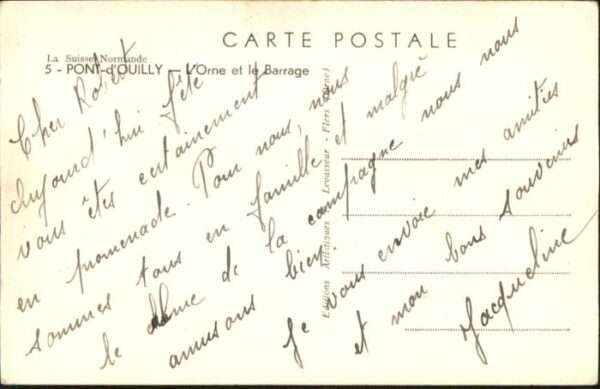 CARTE POSTALE
La Suisse Normande
5 - PONT-d'OUILLY — L'Orne et le Barrage
Editions Artistiques Levasseur - Flers (Orne)
Cher Robert
Aujourd'hui fête
vous êtes certainement
en promenade. Pour nous, nous
sommes tous en famille et malgré
le calme de la campagne nous nous
amusons bien.
Je vous envoie mes amitiés
et mon bons souvenirs
Jacqueline